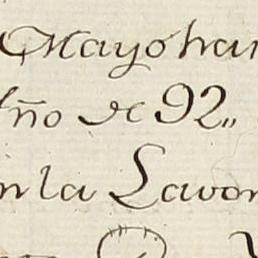 Mayo han
Año de 92,,
en la Lavor